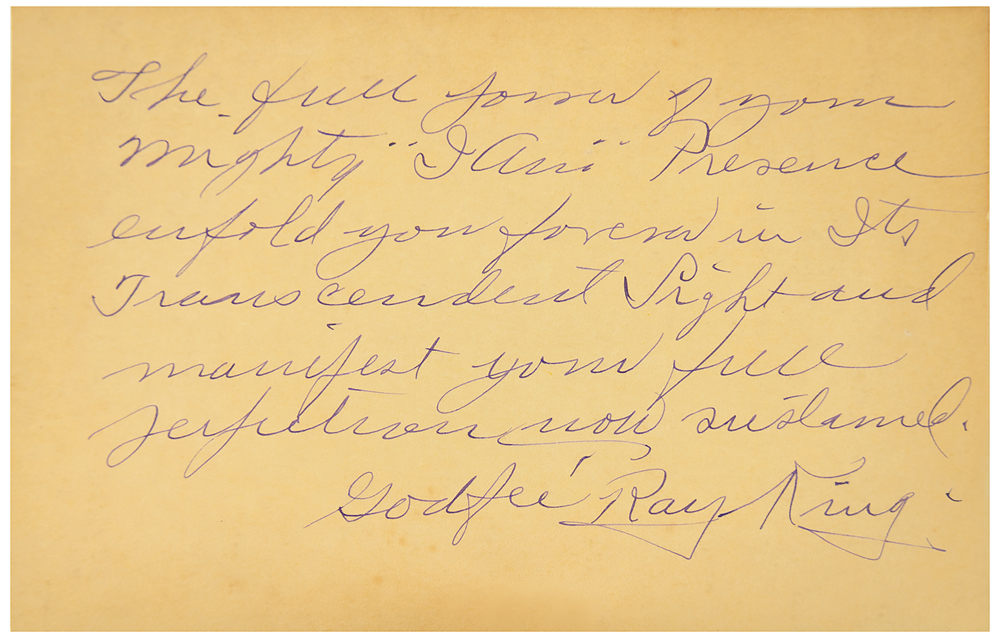 The full power of your
mighty "I Am" Presence
enfold you forever in Its
Transcendent Light and
manifest your full
perfection now sustained.
Godfré Ray King.